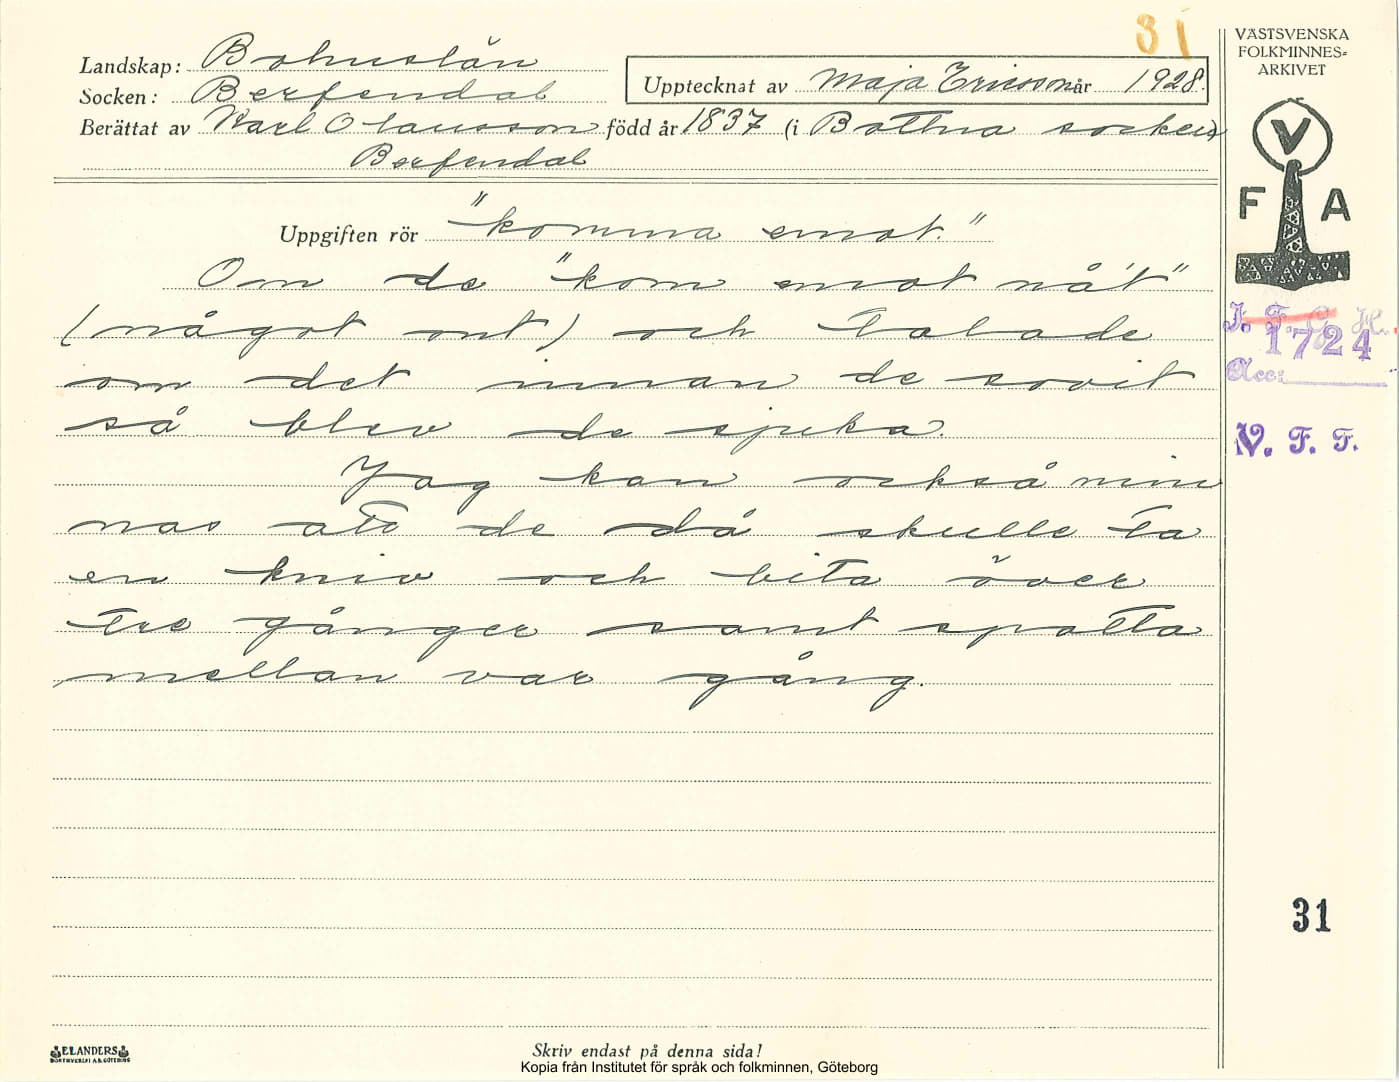 31
VÄSTSVENSKA
FOLKMINNES=
ARKIVET
Landskap: Bohuslän
Socken: Berfendal
Upptecknat av Maja Ericsson år 1928.
Berättat av Karl Olausson född år 1837 (i Bottna socken)
Berfendal
V
F A
Uppgiften rör "komma emot."
Om de "kom emot nå't"
(något ont) och talade
om det innan de sovit
så blev de sjuka.
Jag kan också min
nas att de då skulle ta
en kniv och bita över
tre gånger samt spotta
mellan var gång.
I. F. G. H.
1724
Acc:
V. F. F.
31
ELANDERS
BOKTRYCKERI A.B. GÖTEBORG
Skriv endast på denna sida!
Kopia från Institutet för språk och folkminnen, Göteborg